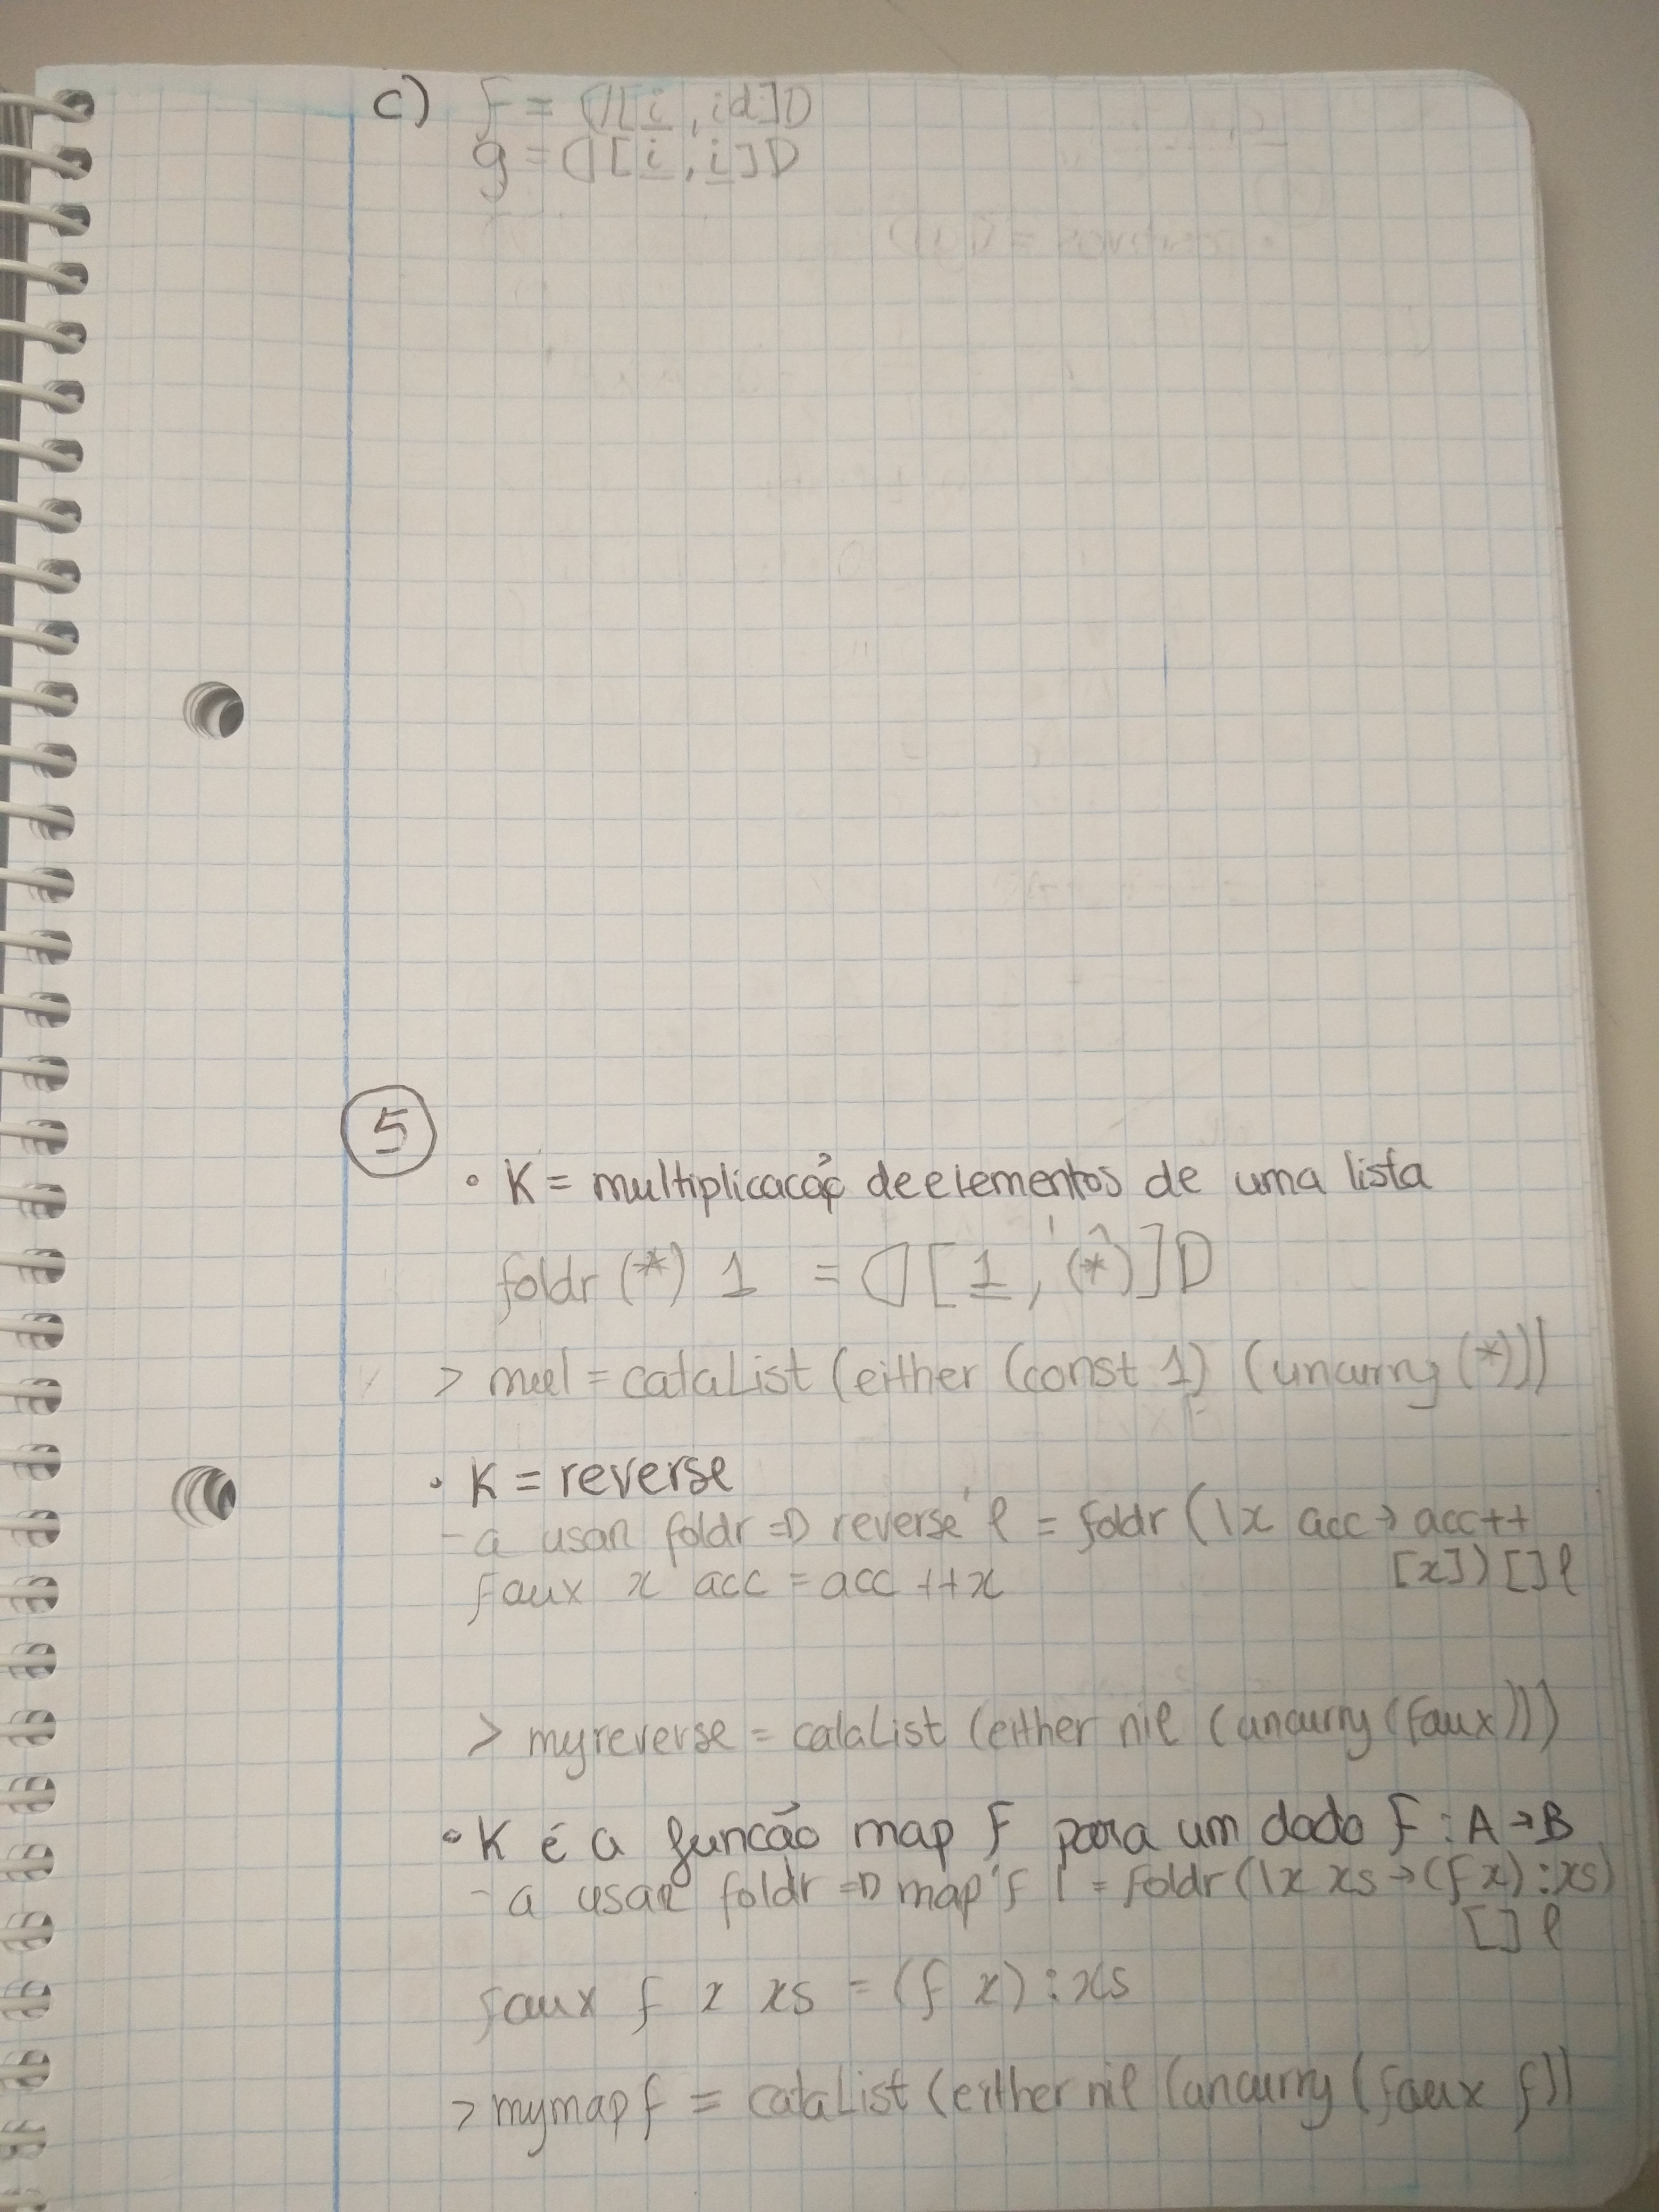 c) f = ⦇[i, id]⦈
g = ⦇[i, i]⦈
5
• K = multiplicação de elementos de uma lista
foldr (*) 1 = ⦇[1, (*)^]⦈
> mul = cataList (either (const 1) (uncurry (*)))
• K = reverse
- a usar foldr => reverse' l = foldr (\x acc → acc ++
[x]) [] l
faux x acc = acc ++ x
> myreverse = cataList (either nil (uncurry (faux)))
• K é a função map f para um dado f : A → B
- a usar foldr => map' f l = foldr (\x xs → (f x) : xs)
[] l
faux f x xs = (f x) : xs
> mymap f = cataList (either nil (uncurry (faux f))